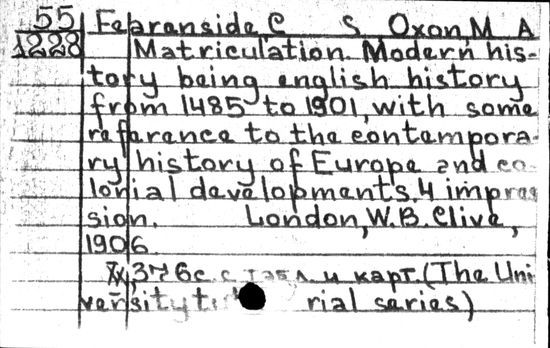 55 Fearenside, C S Oxon, M A
1228 Matriculation. Modern his-
tory being english history
from 1485 to 1901, with some
reference to the contempora-
ry history of Europe and co-
lonial developments. 4 impres
sion. London, W.B. Clive,
1906.
XX, 376 с. с табл. и карт. (The Uni
versity tu rial series)